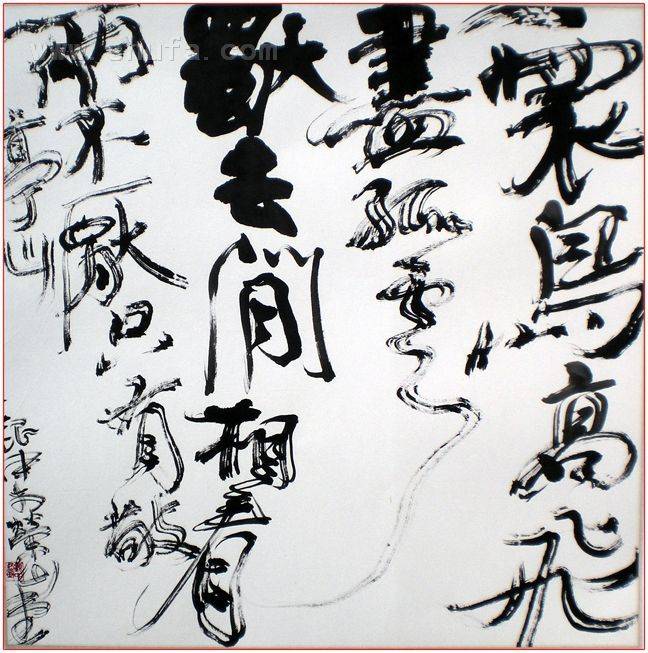 衆鳥高飛
盡孤雲
獨去閒相看
兩不厭只有敬
亭山
www.shufa.com